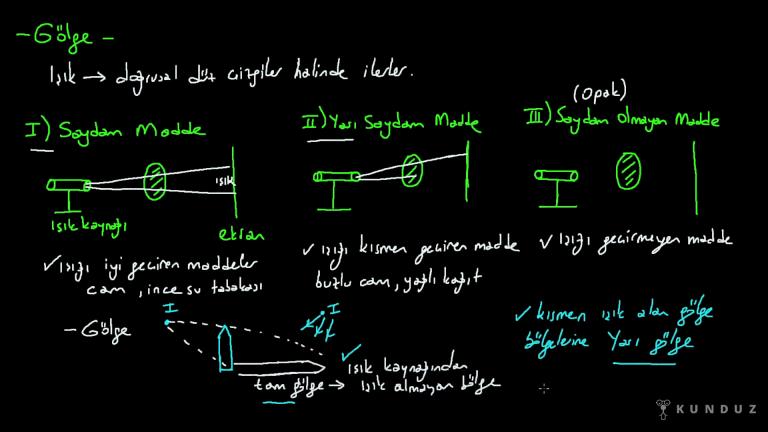 - Gölge -
Işık → doğrusal düz çizgiler halinde ilerler.
I) Saydam Madde
II) Yarı Saydam Madde
(Opak)
III) Saydam Olmayan Madde
ışık
ışık kaynağı
ekran
✓ ışığı iyi geçiren maddeler
cam, ince su tabakası
✓ ışığı kısmen geçiren madde
buzlu cam, yağlı kağıt
✓ ışığı geçirmeyen madde
- Gölge
I
I
✓ ışık kaynağından
tam gölge → ışık almayan bölge
✓ kısmen ışık alan gölge
bölgelerine Yarı gölge
KUNDUZ